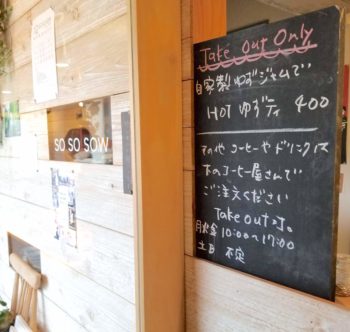 SO SO SOW
Take Out Only
自家製ゆずジャムで
HOT ゆずティ 400
コーヒーやドリンクは
コーヒー屋さんで
ご注文ください
Take out
月火金 10:00~17:00
土日 不定